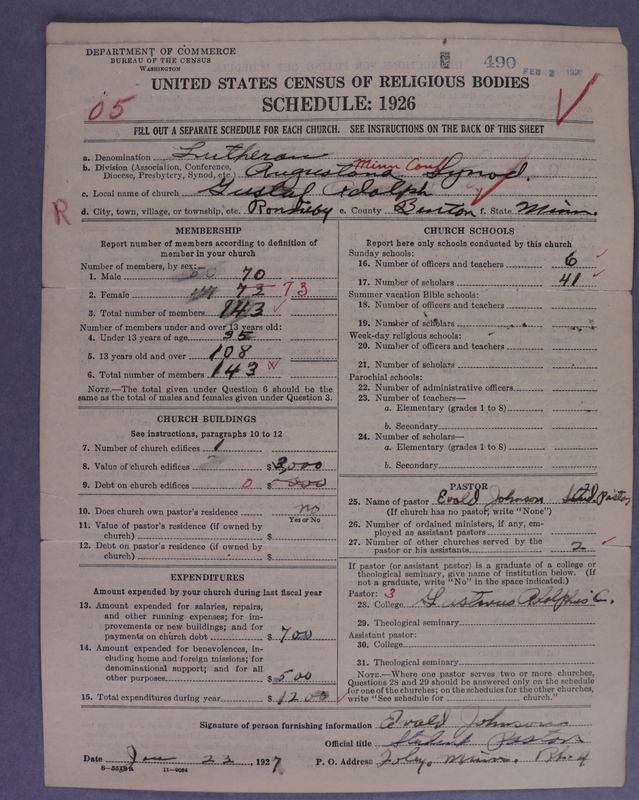 DEPARTMENT OF COMMERCE
BUREAU OF THE CENSUS
WASHINGTON
490
FEB 2 1927
UNITED STATES CENSUS OF RELIGIOUS BODIES
SCHEDULE: 1926
05
FILL OUT A SEPARATE SCHEDULE FOR EACH CHURCH. SEE INSTRUCTIONS ON THE BACK OF THIS SHEET
a. Denomination Lutheran
b. Division (Association, Conference, Diocese, Presbytery, Synod, etc.) Augustana Minn Conf Synod.
c. Local name of church Gustaf Adolph
R
d. City, town, village, or township, etc. Ronneby e. County Benton f. State Minn.
MEMBERSHIP
Report number of members according to definition of
member in your church
Number of members, by sex:
1. Male 70
2. Female 73 73
3. Total number of members 143
Number of members under and over 13 years old:
4. Under 13 years of age 35
5. 13 years old and over 108
6. Total number of members 143
NOTE.—The total given under Question 6 should be the
same as the total of males and females given under Question 3.
CHURCH BUILDINGS
See instructions, paragraphs 10 to 12
7. Number of church edifices 1
8. Value of church edifices $ 3,000
9. Debt on church edifices 0 $
10. Does church own pastor's residence no
Yes or No
11. Value of pastor's residence (if owned by
church) $
12. Debt on pastor's residence (if owned by
church) $
EXPENDITURES
Amount expended by your church during last fiscal year
13. Amount expended for salaries, repairs,
and other running expenses; for im-
provements or new buildings; and for
payments on church debt $ 700
14. Amount expended for benevolences, in-
cluding home and foreign missions; for
denominational support; and for all
other purposes $ 500
15. Total expenditures during year $ 1200
CHURCH SCHOOLS
Report here only schools conducted by this church
Sunday schools:
16. Number of officers and teachers 6
17. Number of scholars 41
Summer vacation Bible schools:
18. Number of officers and teachers
19. Number of scholars
Week-day religious schools:
20. Number of officers and teachers
21. Number of scholars
Parochial schools:
22. Number of administrative officers
23. Number of teachers—
a. Elementary (grades 1 to 8)
b. Secondary
24. Number of scholars—
a. Elementary (grades 1 to 8)
b. Secondary
PASTOR
25. Name of pastor Evald Johnson Stud. Pastor
(If church has no pastor, write "None")
26. Number of ordained ministers, if any, em-
ployed as assistant pastors
27. Number of other churches served by the
pastor or his assistants 2
If pastor (or assistant pastor) is a graduate of a college or
theological seminary, give name of institution below. (If
not a graduate, write "No" in the space indicated.)
Pastor: 3
28. College Gustavus Adolphus C.
29. Theological seminary
Assistant pastor:
30. College
31. Theological seminary
NOTE.—Where one pastor serves two or more churches,
Questions 28 and 29 should be answered only on the schedule
for one of the churches; on the schedules for the other churches,
write "See schedule for church."
Signature of person furnishing information Evald Johnson
Official title Student Pastor
Date Jan 22, 1927 P. O. Address Foley, Minn.
11—9084